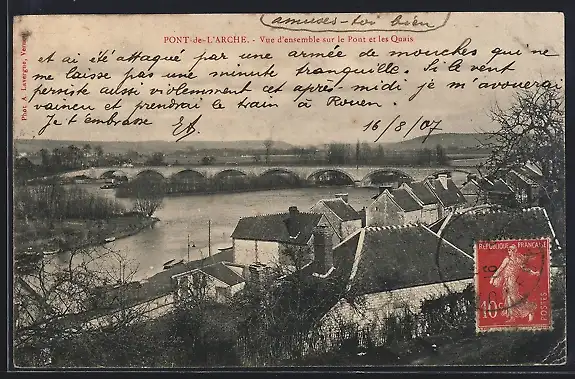 amuses-toi bien
PONT-de-L'ARCHE. - Vue d'ensemble sur le Pont et les Quais
et ai été attaqué par une armée de mouches qui ne
me laisse pas une minute tranquille. Si le vent
persiste aussi violemment cet après-midi je m'avouerai
vaincu et prendrai le train à Rouen.
Je t'embrasse
16/8/07
Phot. A. Lavergne, Vernon
REPUBLIQUE FRANÇAISE
10c
POSTES